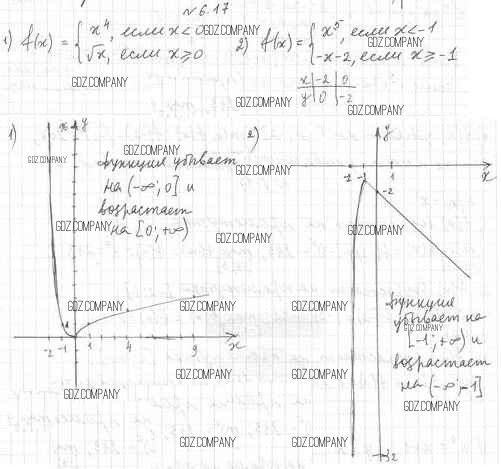 №6.17
1) f(x) = { x⁴, если x<0
√x, если x⩾0
2) f(x) = { x⁵, если x<-1
-x-2, если x⩾-1
x | -2 | 0
y | 0 | -2
GDZ.COMPANY
GDZ.COMPANY
GDZ.COMPANY
GDZ.COMPANY
GDZ.COMPANY
1)
y
функция убывает
на (-∞; 0] и
возрастает
на [0; +∞)
-2 -1 1 4 9 x
GDZ.COMPANY
GDZ.COMPANY
GDZ.COMPANY
GDZ.COMPANY
GDZ.COMPANY
GDZ.COMPANY
GDZ.COMPANY
2)
y
-2 -1 1 x
-2
функция
убывает на
[-1; +∞) и
возрастает
на (-∞; -1]
GDZ.COMPANY
GDZ.COMPANY
GDZ.COMPANY
GDZ.COMPANY
GDZ.COMPANY
GDZ.COMPANY
GDZ.COMPANY